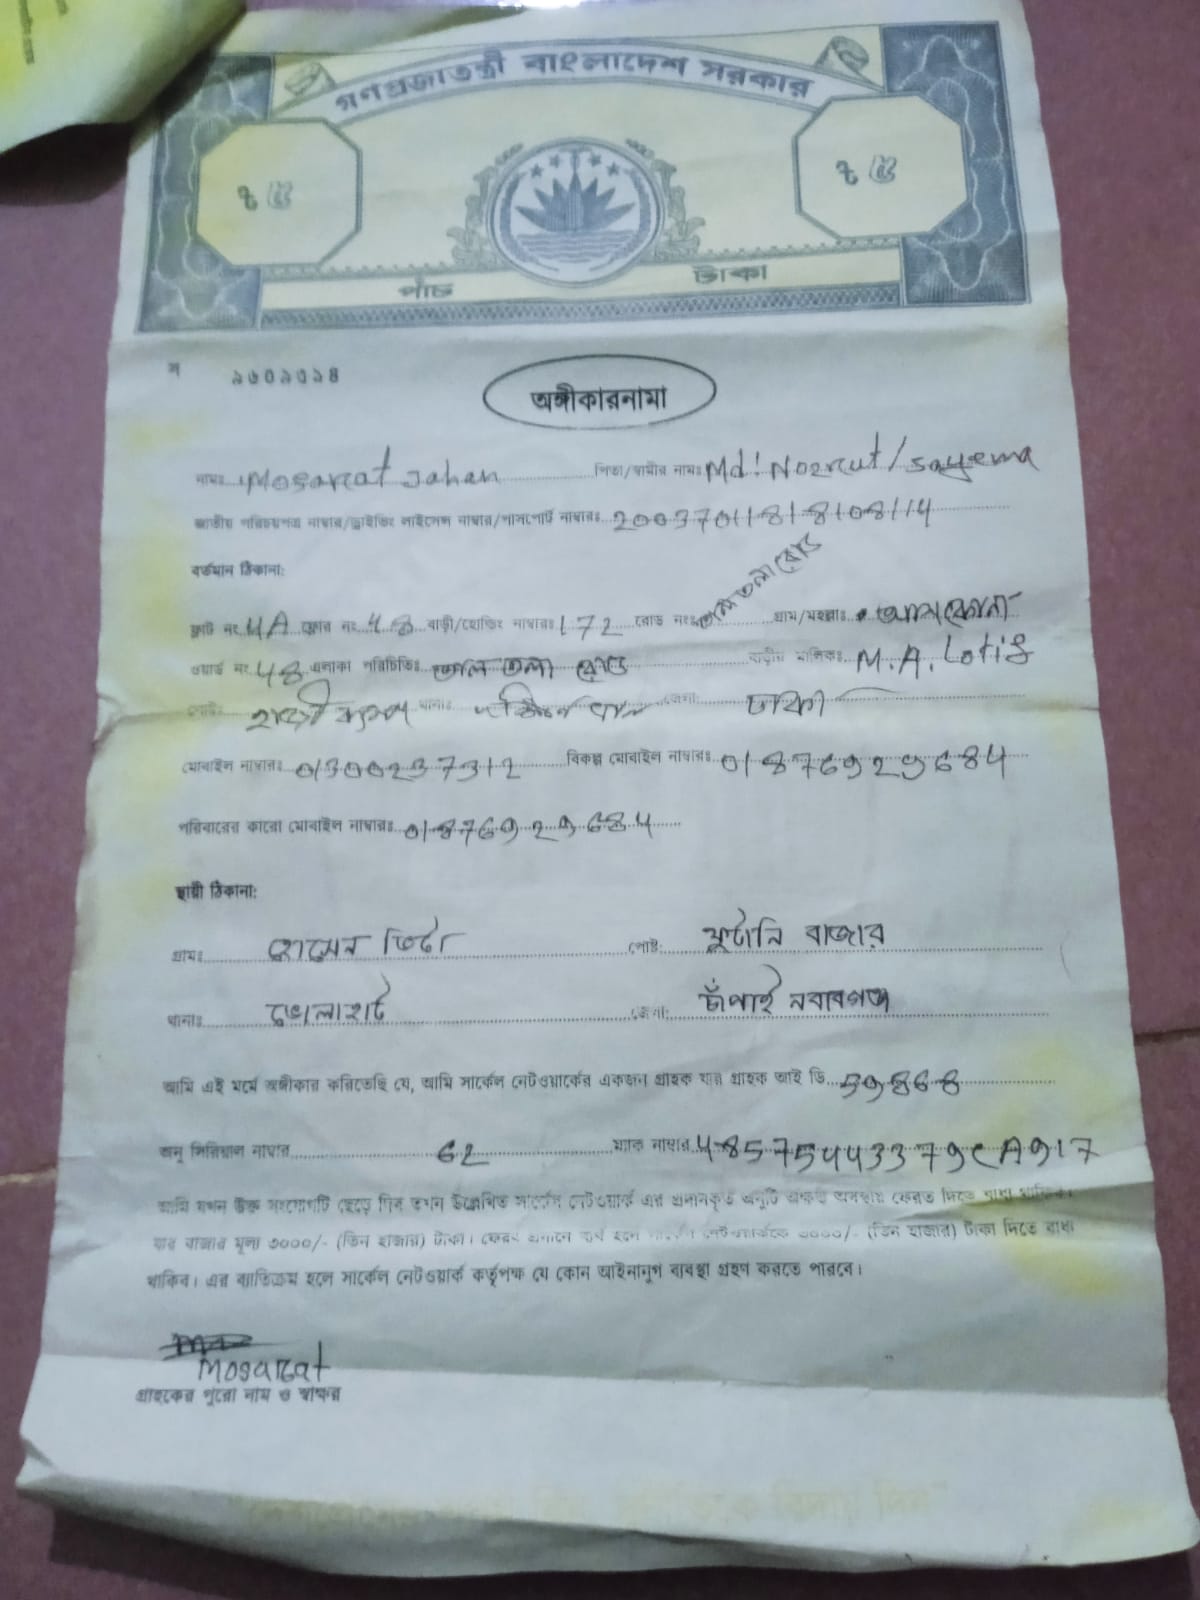 গণপ্রজাতন্ত্রী বাংলাদেশ সরকার
৳ ৫ ৳ ৫
পাঁচ টাকা
অঙ্গীকারনামা
নামঃ Mosarat Jahan পিতা/স্বামীর নামঃ Md: Nosrut/Sayema
জাতীয় পরিচয়পত্র নাম্বার/ড্রাইভিং লাইসেন্স নাম্বার/পাসপোর্ট নাম্বারঃ 20037011818108114
বর্তমান ঠিকানা:
ফ্লাট নং 4A ফ্লোর নং বাড়ী/হোল্ডিং নাম্বারঃ 172 রোড নংঃ তালতলা রোড গ্রাম/মহল্লাঃ আশকোনা
ওয়ার্ড নং 48 এলাকা পরিচিতিঃ তালতলা রোড বাড়ীর মালিকঃ M.A. Lotif
পোষ্টঃ থানাঃ দক্ষিনখান জেলাঃ ঢাকা
মোবাইল নাম্বারঃ 01300237312 বিকল্প মোবাইল নাম্বারঃ 01876929684
পরিবারের কারো মোবাইল নাম্বারঃ 01876929684
স্থায়ী ঠিকানা:
গ্রামঃ হোসেন ভিটা পোষ্ট: ফুটানি বাজার
থানাঃ ভোলাহাট জেলা: চাঁপাই নবাবগঞ্জ
আমি এই মর্মে অঙ্গীকার করিতেছি যে, আমি সার্কেল নেটওয়ার্কের একজন গ্রাহক যার গ্রাহক আই ডি 59868
অনু সিরিয়াল নাম্বার 62 ম্যাক নাম্বার 48575443379CA917
আমি যখন উক্ত সংযোগটি ছেড়ে দিব তখন উল্লেখিত সার্কেল নেটওয়ার্ক এর প্রদানকৃত অনুটি অক্ষত অবস্থায় ফেরত দিতে বাধ্য থাকিব।
যার বাজার মূল্য ৩০০০/- (তিন হাজার) টাকা। ফেরৎ প্রদানে ব্যর্থ হলে সার্কেল নেটওয়ার্ককে ৩০০০/- (তিন হাজার) টাকা দিতে বাধ্য
থাকিব। এর ব্যতিক্রম হলে সার্কেল নেটওয়ার্ক কর্তৃপক্ষ যে কোন আইনানুগ ব্যবস্থা গ্রহণ করতে পারবে।
Mosarat
গ্রাহকের পুরো নাম ও স্বাক্ষর